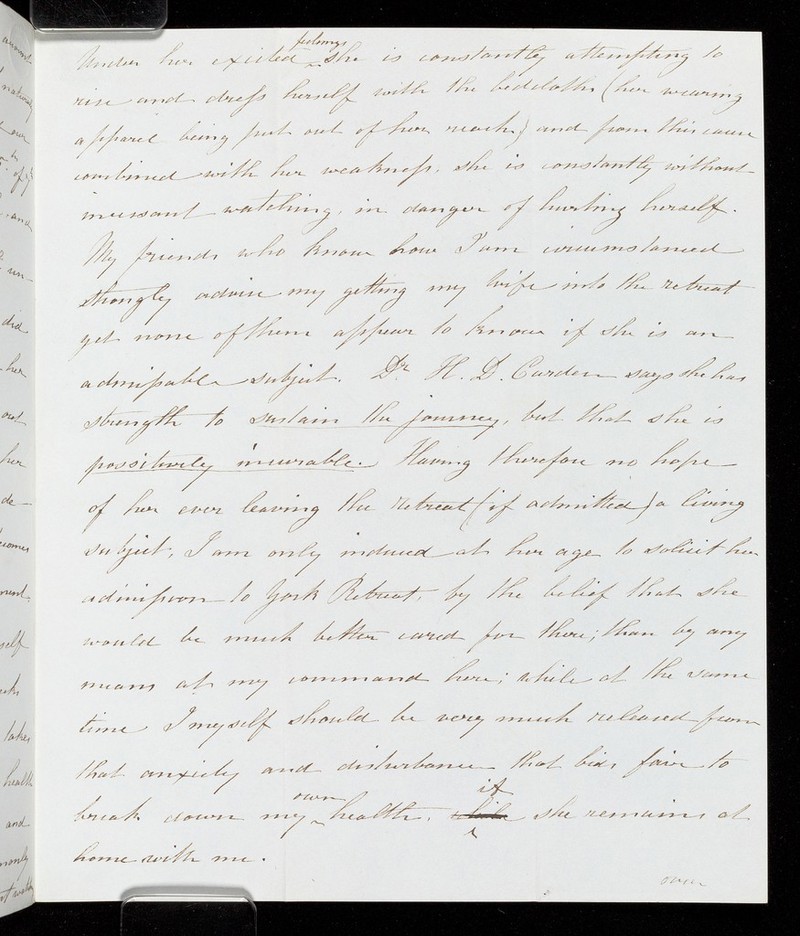 Under her excited feelings she is constantly attempting to
rise and dress herself with the bedcloths (her wearing
apparel being put out of her reach) and from this cause
combined with her weakness, she is constantly without
incessant watching, in danger of hurting herself.
My friends who know how I am circumstanced
strongly advise my getting my Wife into the retreat
yet none of them appear to know if she is an
admissable subject. Dr. H. D. Carden says she has
strength to sustain the journey, but that she is
possitively incurable. Having therefore no hope
of her ever leaving the retreat (if admitted) a living
subject, I am only induced at her age to solicit her
admission to York Retreat, by the belief that she
would be much better cared for there; than by any
means at my command here; while at the same
time I myself should be very much released from
that anxiety and disturbance that bids fair to
break down my own health, while if she remains at
home with me.
over